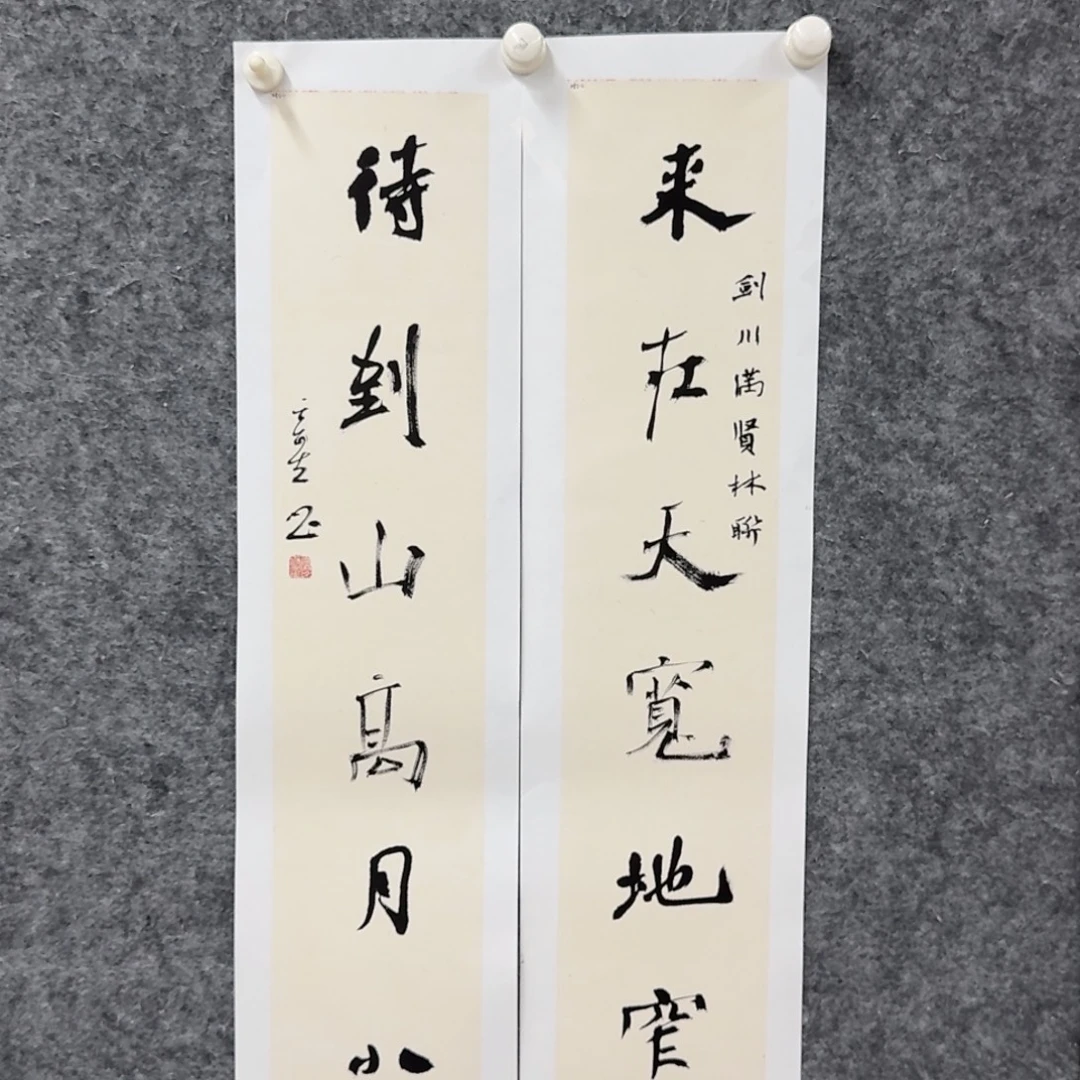 来在天寬地窄
剑川满贤林聯
待到山高月小